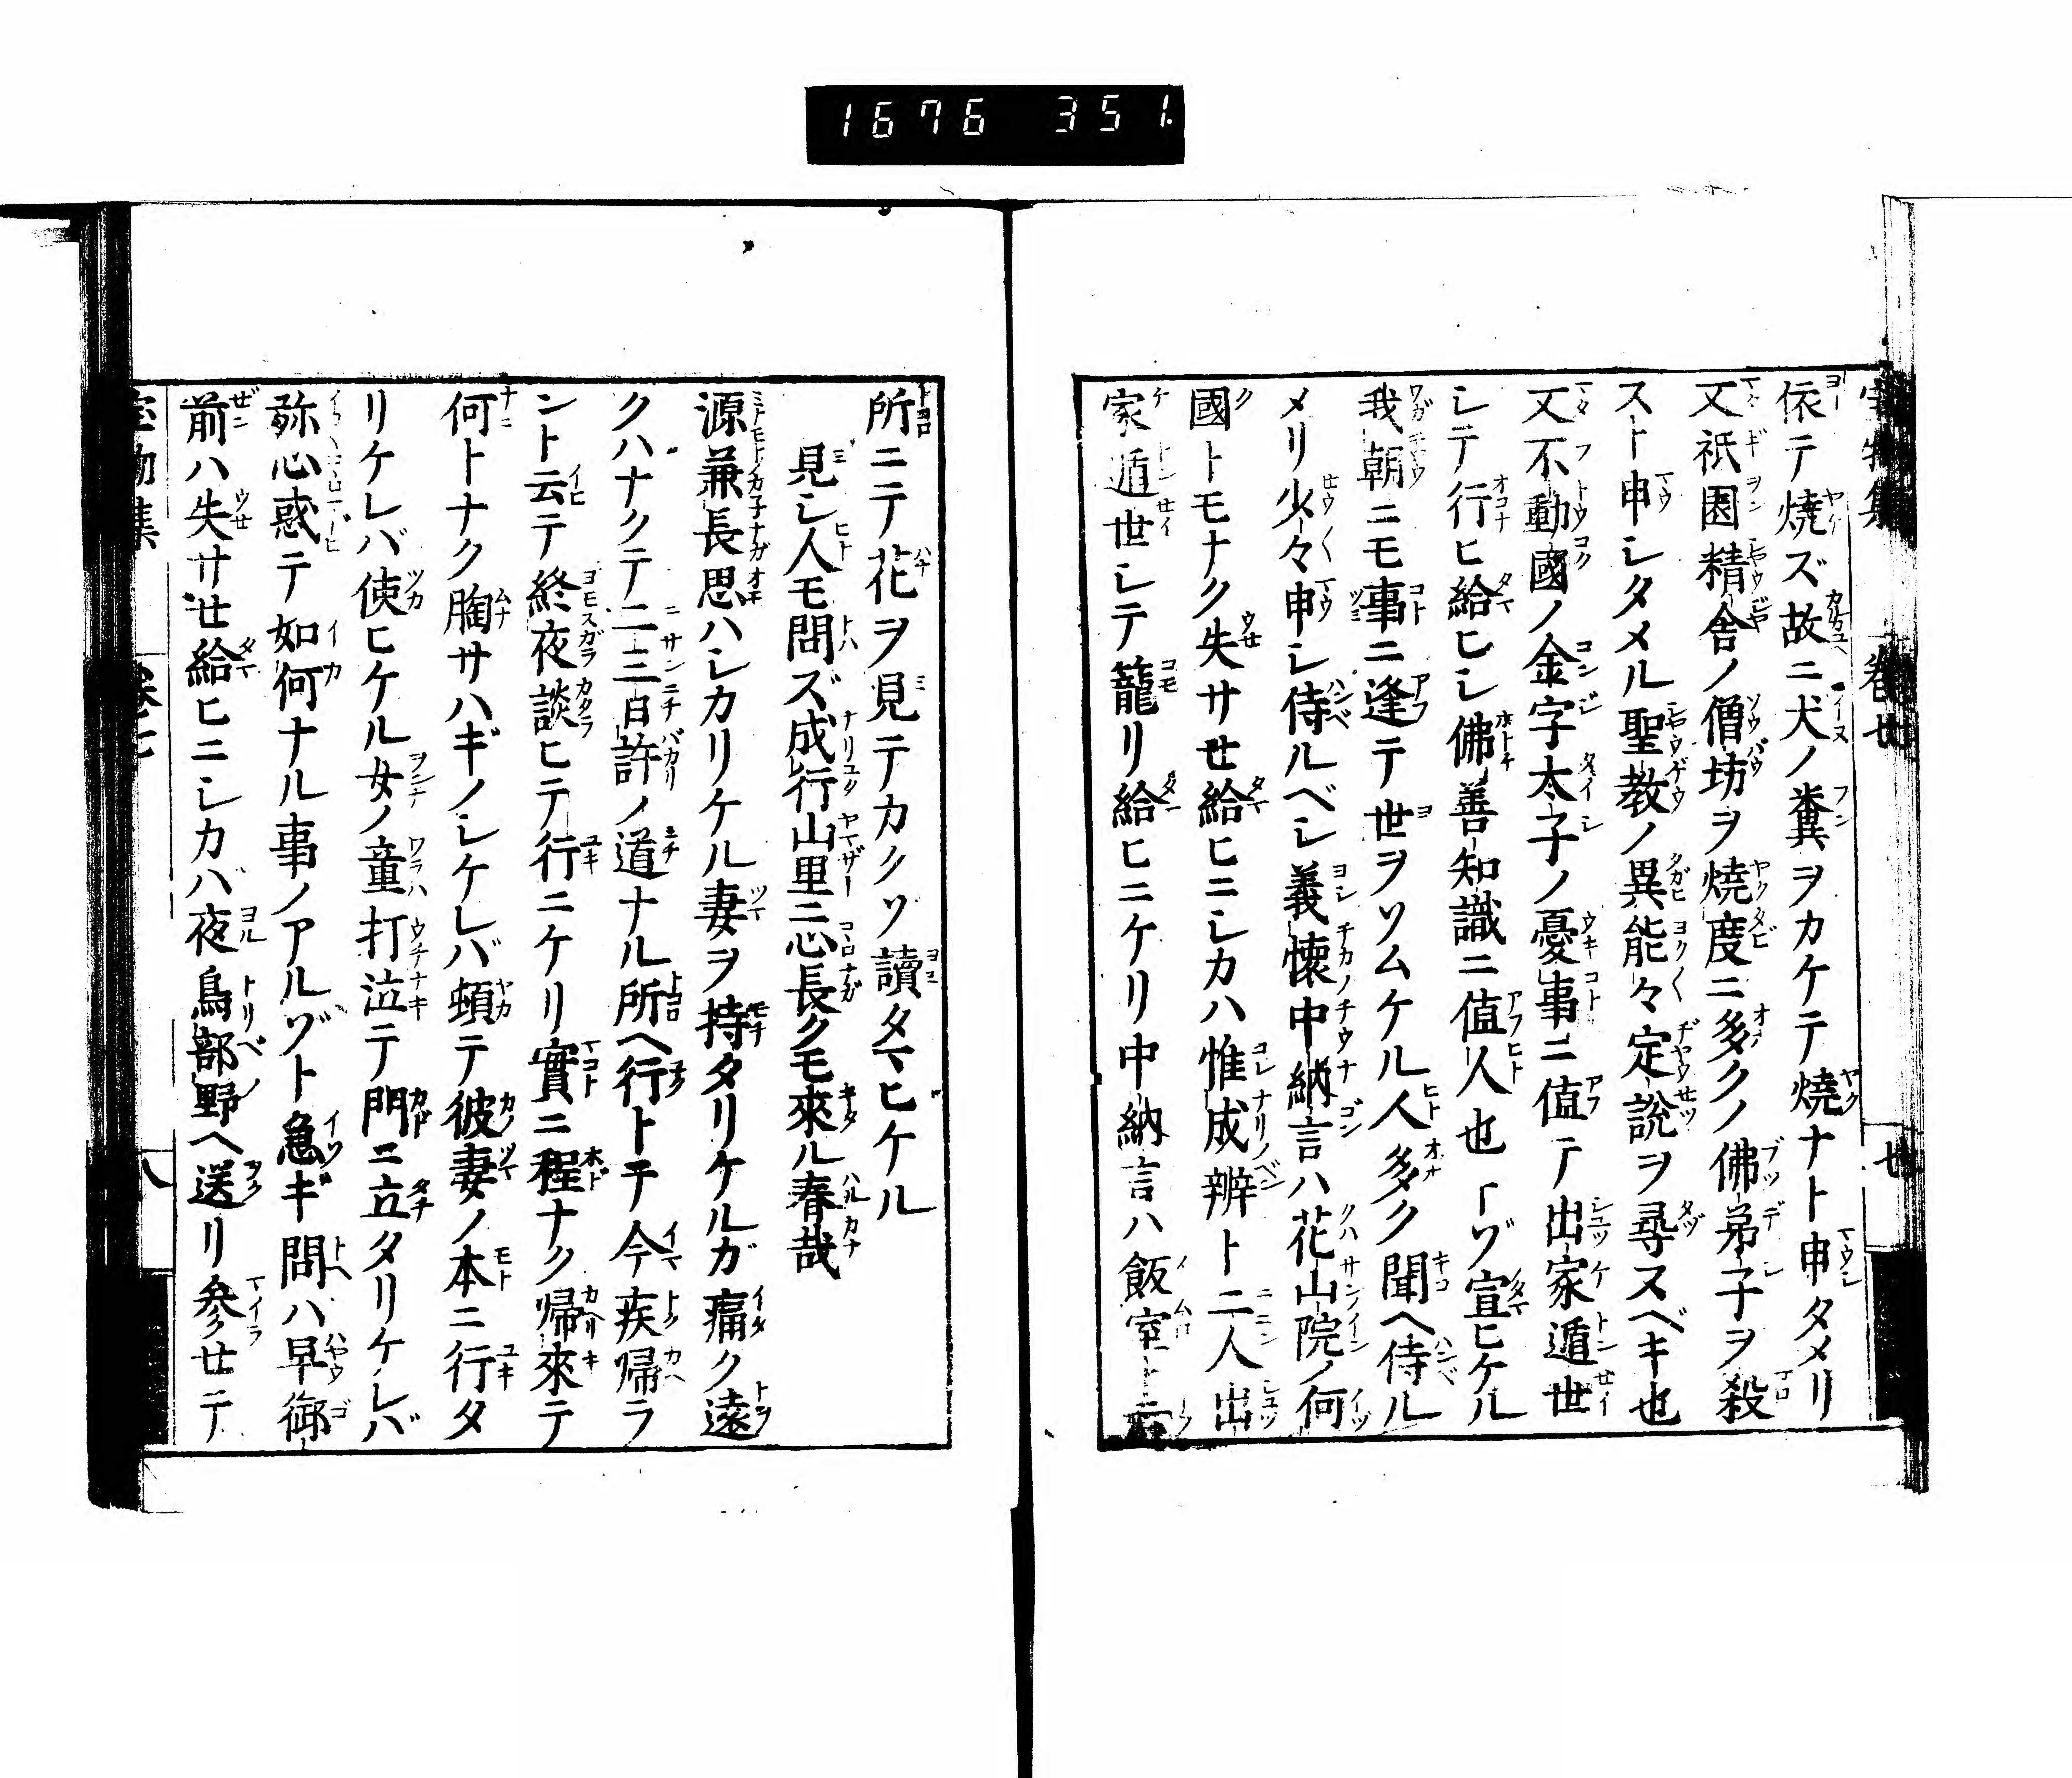 1676 351
依テ燒ズ故ニ犬ノ糞ヲカケテ燒ナト申タメリ
又祇園精舍ノ僧坊ヲ燒度ニ多クノ佛弟子ヲ殺
スト申シタメル聖教ノ異能々定說ヲ尋スベキ也
又不動國ノ金字太子ノ憂事ニ値テ出家遁世
シテ行ヒ給ヒシ佛善知識ニ値人也トゾ宣ヒケル
我朝ニモ事ニ逢テ世ヲソムケル人多ク聞ヘ侍ル
メリ少々申シ侍ルベシ義懷中納言ハ花山院ノ何
國トモナク失サセ給ヒニシカハ惟成辨ト二人出
家遁世シテ籠リ給ヒニケリ中納言ハ飯室ト云
所ニテ花ヲ見テカクソ讀タマヒケル
見シ人モ問ズ成行山里ニ心長クモ來ル春哉
源兼長思ハシカリケル妻ヲ持タリケルガ痛ク遠
クハナクテ二三日許ノ道ナル所ヘ行トテ今疾歸ラ
ント云テ終夜談ヒテ行ニケリ實ニ程ナク歸來テ
何トナク胸サハギノシケレバ頓テ彼妻ノ本ニ行タ
リケレバ使ヒケル女ノ童打泣テ門ニ立タリケレバ
弥心惑テ如何ナル事ノアルゾト急ギ問ハ早御
前ハ失サセ給ヒニシカバ夜鳥部野ヘ送リ参セテ
物集
卷七
八